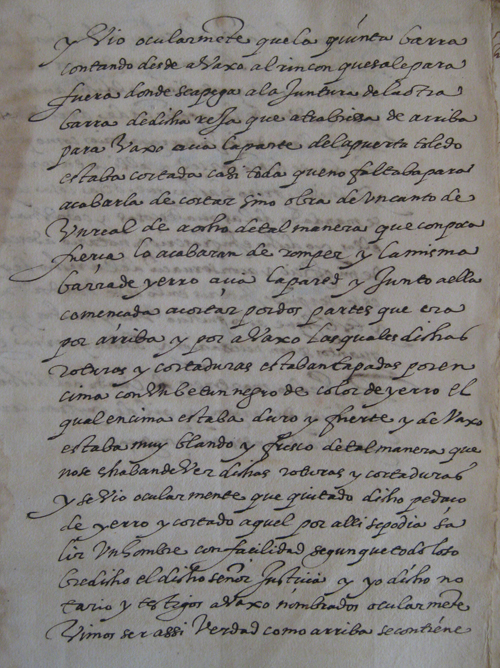 y Vio ocularmēte que la quinta barra
contando desde avaxo al rincon que sale para
fuera donde se apega a la Juntura de la otra
barra de dicha reJa que atrabiessa de arriba
para Vaxo acia la parte de la puerta toledo
estaba cortada casi toda que no faltaba para
acabarla de cortar sino obra de Un canto de
Un real de a ocho de tal manera que con poca
fuerça lo acabaran de romper y la misma
barra de yerro acia la pared y Junto a ella
començada a cortar por dos partes que era
por arriba y por aVaxo las quales dichas
roturas y cortaduras estaban tapadas por en
cima con Un betun negro de color de yerro el
qual encima estaba duro y fuerte y de Vaxo
estaba muy blando y fresco de tal manera que
no se echaban de Ver dichas roturas y cortaduras
y se Vio ocularmente que quitado dicho pedaço
de yerro y cortado aquel por alli se podia sa
lir Un hombre con facilidad segun que todo lo so
bredicho el dicho señor Justicia y yo dicho no
tario y testigos aVaxo nombrados ocularmēte
Vimos ser assi Verdad como arriba se contiene